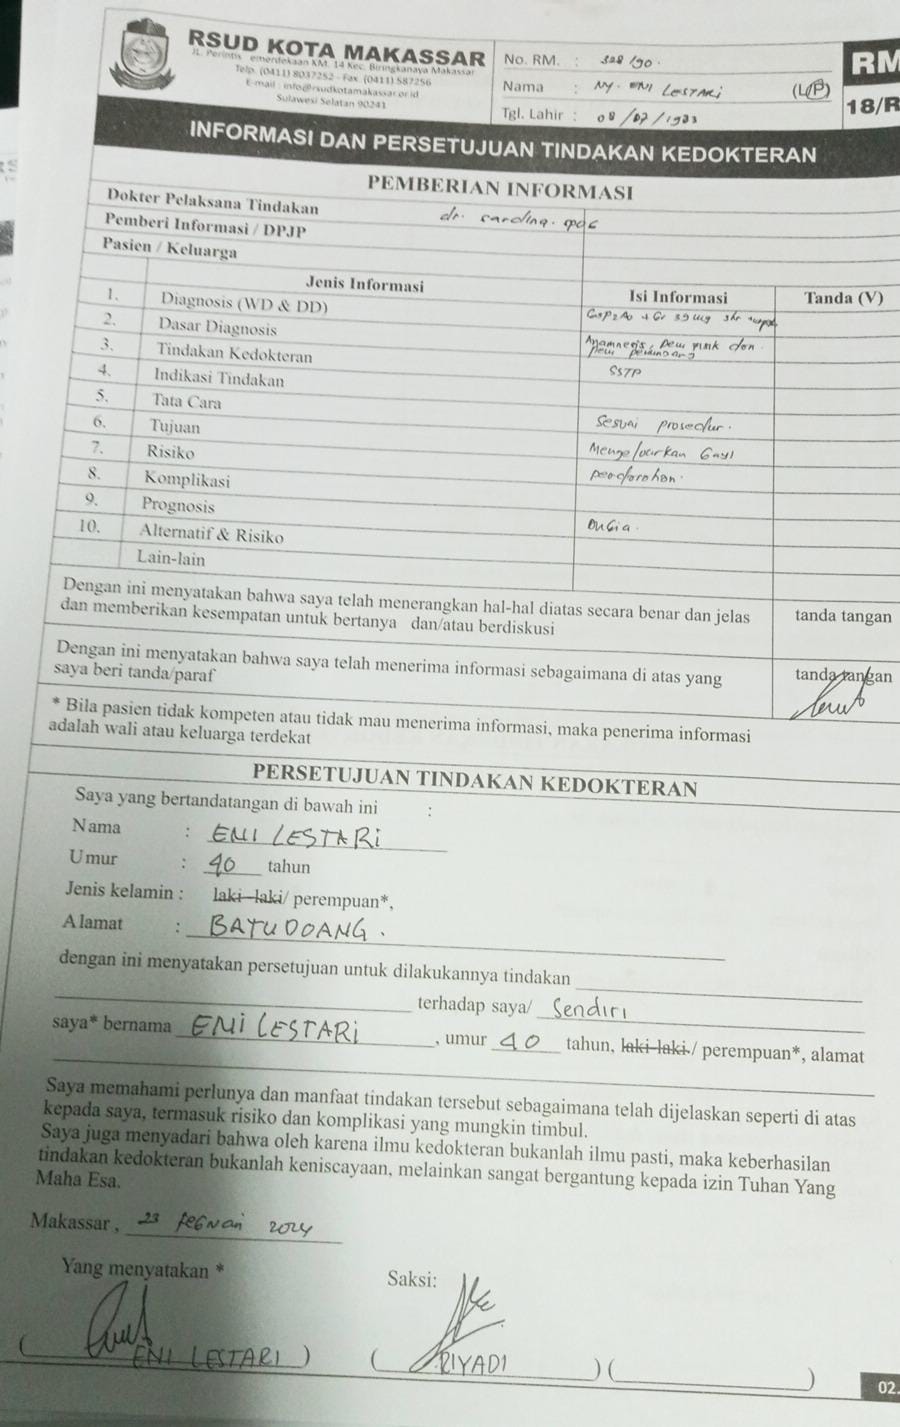 RSUD KOTA MAKASSAR
JL. Perintis emerdekaan KM. 14 Kec. Biringkanaya Makassar
Telp. (0411) 8037252 - Fax. (0411) 587256
E-mail : info@rsudkotamakassar.or.id
Sulawesi Selatan 90241
No. RM. : 328190.
Nama : NY. ENI LESTARI (L/P)
Tgl. Lahir : 08/07/1983
RM
18/R
INFORMASI DAN PERSETUJUAN TINDAKAN KEDOKTERAN
PEMBERIAN INFORMASI
Dokter Pelaksana Tindakan
Pemberi Informasi / DPJP
Pasien / Keluarga
dr.
Jenis Informasi Isi Informasi Tanda (V)
1. Diagnosis (WD & DD)
2. Dasar Diagnosis Anamnesis,
3. Tindakan Kedokteran SSTP
4. Indikasi Tindakan
5. Tata Cara Sesuai prosedur.
6. Tujuan Mengeluarkan bayi
7. Risiko perdarahan.
8. Komplikasi
9. Prognosis Dubia.
10. Alternatif & Risiko
Lain-lain
Dengan ini menyatakan bahwa saya telah menerangkan hal-hal diatas secara benar dan jelas
dan memberikan kesempatan untuk bertanya dan/atau berdiskusi
tanda tangan
Dengan ini menyatakan bahwa saya telah menerima informasi sebagaimana di atas yang
saya beri tanda/paraf
tanda tangan
* Bila pasien tidak kompeten atau tidak mau menerima informasi, maka penerima informasi
adalah wali atau keluarga terdekat
PERSETUJUAN TINDAKAN KEDOKTERAN
Saya yang bertandatangan di bawah ini :
Nama : ENI LESTARI
Umur : 40 tahun
Jenis kelamin : laki-laki/ perempuan*,
Alamat : BATU DOANG.
dengan ini menyatakan persetujuan untuk dilakukannya tindakan
terhadap saya/ Sendiri
saya* bernama ENI LESTARI, umur 40 tahun, laki-laki / perempuan*, alamat
Saya memahami perlunya dan manfaat tindakan tersebut sebagaimana telah dijelaskan seperti di atas
kepada saya, termasuk risiko dan komplikasi yang mungkin timbul.
Saya juga menyadari bahwa oleh karena ilmu kedokteran bukanlah ilmu pasti, maka keberhasilan
tindakan kedokteran bukanlah keniscayaan, melainkan sangat bergantung kepada izin Tuhan Yang
Maha Esa.
Makassar , 23 2024
Yang menyatakan * Saksi:
( ENI LESTARI ) ( RIYADI ) ( )
02.